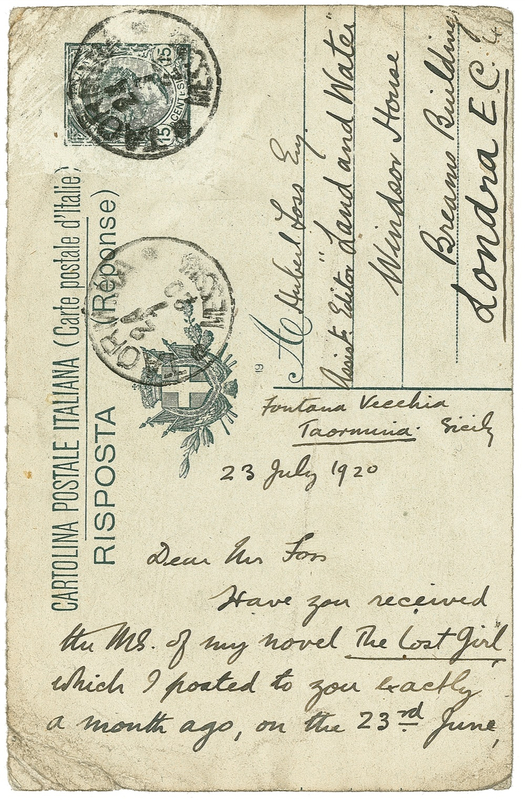 CARTOLINA POSTALE ITALIANA (Carte postale d'Italie)
RISPOSTA (Réponse)
15 CENTESIMI 15
TAORMINA
MESSINA
TAORMINA
MESSINA
19
A Hubert Foss Esq.
Assist. Editor "Land and Water"
Windsor House
Breams Building
Londra E.C. 4
Fontana Vecchia
Taormina. Sicily
23 July 1920
Dear Mr Foss
Have you received
the MS. of my novel The Lost Girl,
which I posted to you exactly
a month ago, on the 23rd June,